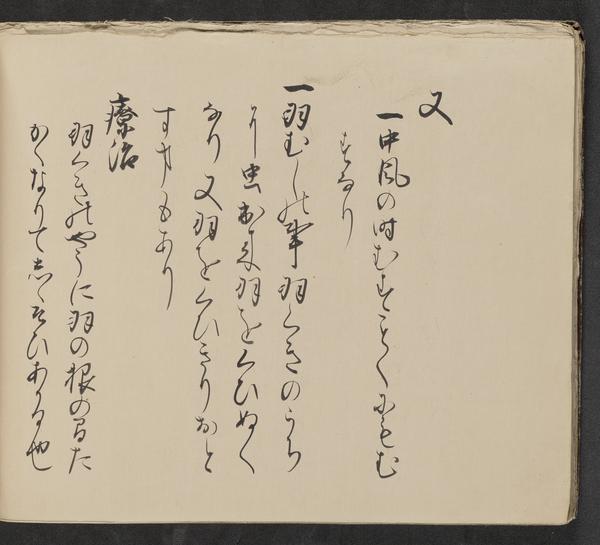 又
一中風の時むすことくにもむ
すなり
一羽むしの事羽くきのうち
に虫出来羽をくひぬく
なり又羽をくひきりおと
す事もあり
療治
羽くきのやうに羽の根の間た
かくなりてしゝそひある也